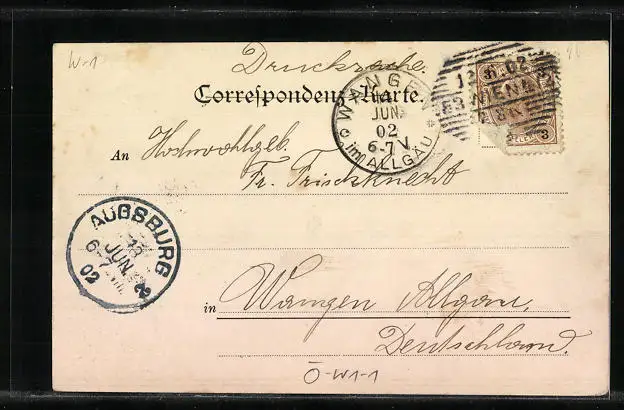 W-1
Drucksache.
Correspondenz-Karte.
WANGEN
14
JUN.
02
6-7V.
im ALLGÄU
12 6 02
WIEN
3
An Hochwohlgeb.
Fr. Frischknecht
AUGSBURG
13
JUN.
6-7
02
2
in Wangen Allgäu.
Deutschland.
Ö-W1-1